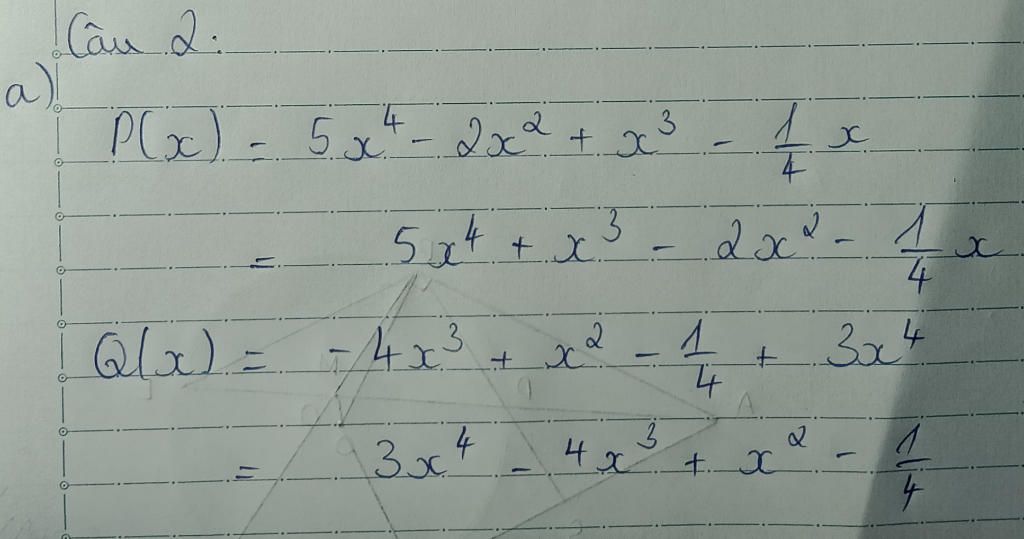 Câu 2:
a)
P(x) = 5x⁴ - 2x² + x³ - 1/4 x
= 5x⁴ + x³ - 2x² - 1/4 x
Q(x) = - 4x³ + x² - 1/4 + 3x⁴
= 3x⁴ - 4x³ + x² - 1/4
A